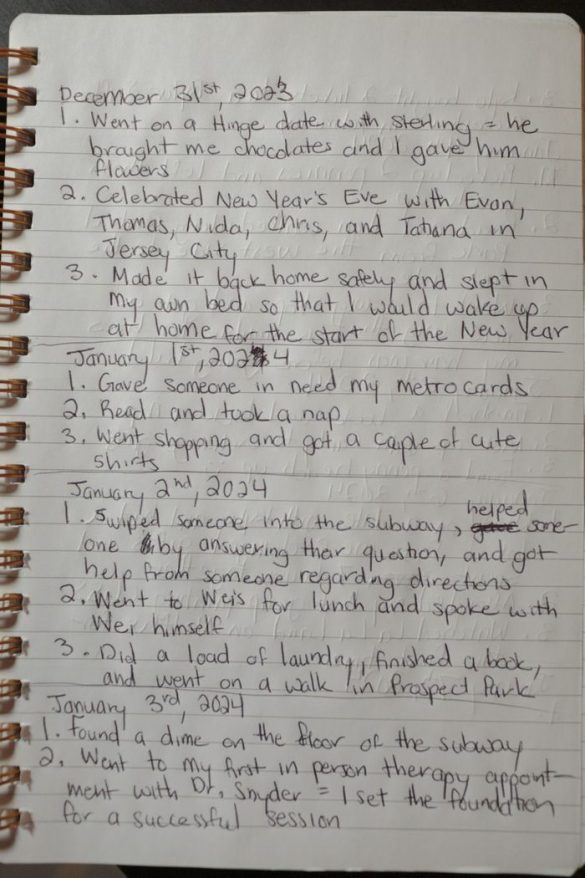 December 31st, 2023
1. Went on a Hinge date with Sterling = he
braught me chocolates and I gave him
flowers
2. Celebrated New Year's Eve with Evan,
Thomas, Nida, Chris, and Tatiana in
Jersey City
3. Made it back home safely and slept in
my own bed so that I would wake up
at home for the start of the New Year
January 1st, 2024
1. Gave someone in need my metrocards
2. Read and took a nap
3. Went shopping and got a cople of cute
shirts
January 2nd, 2024
1. Swiped someone into the subway, helped some-
one by answering their question, and got
help from someone regarding directions
2. Went to Weis for lunch and spoke with
Wei himself
3. Did a load of laundry, finished a book,
and went on a walk in Prospect Park
January 3rd, 2024
1. Found a dime on the floor of the subway
2. Went to my first in person therapy appoint-
ment with Dr. Snyder = I set the foundation
for a successful session